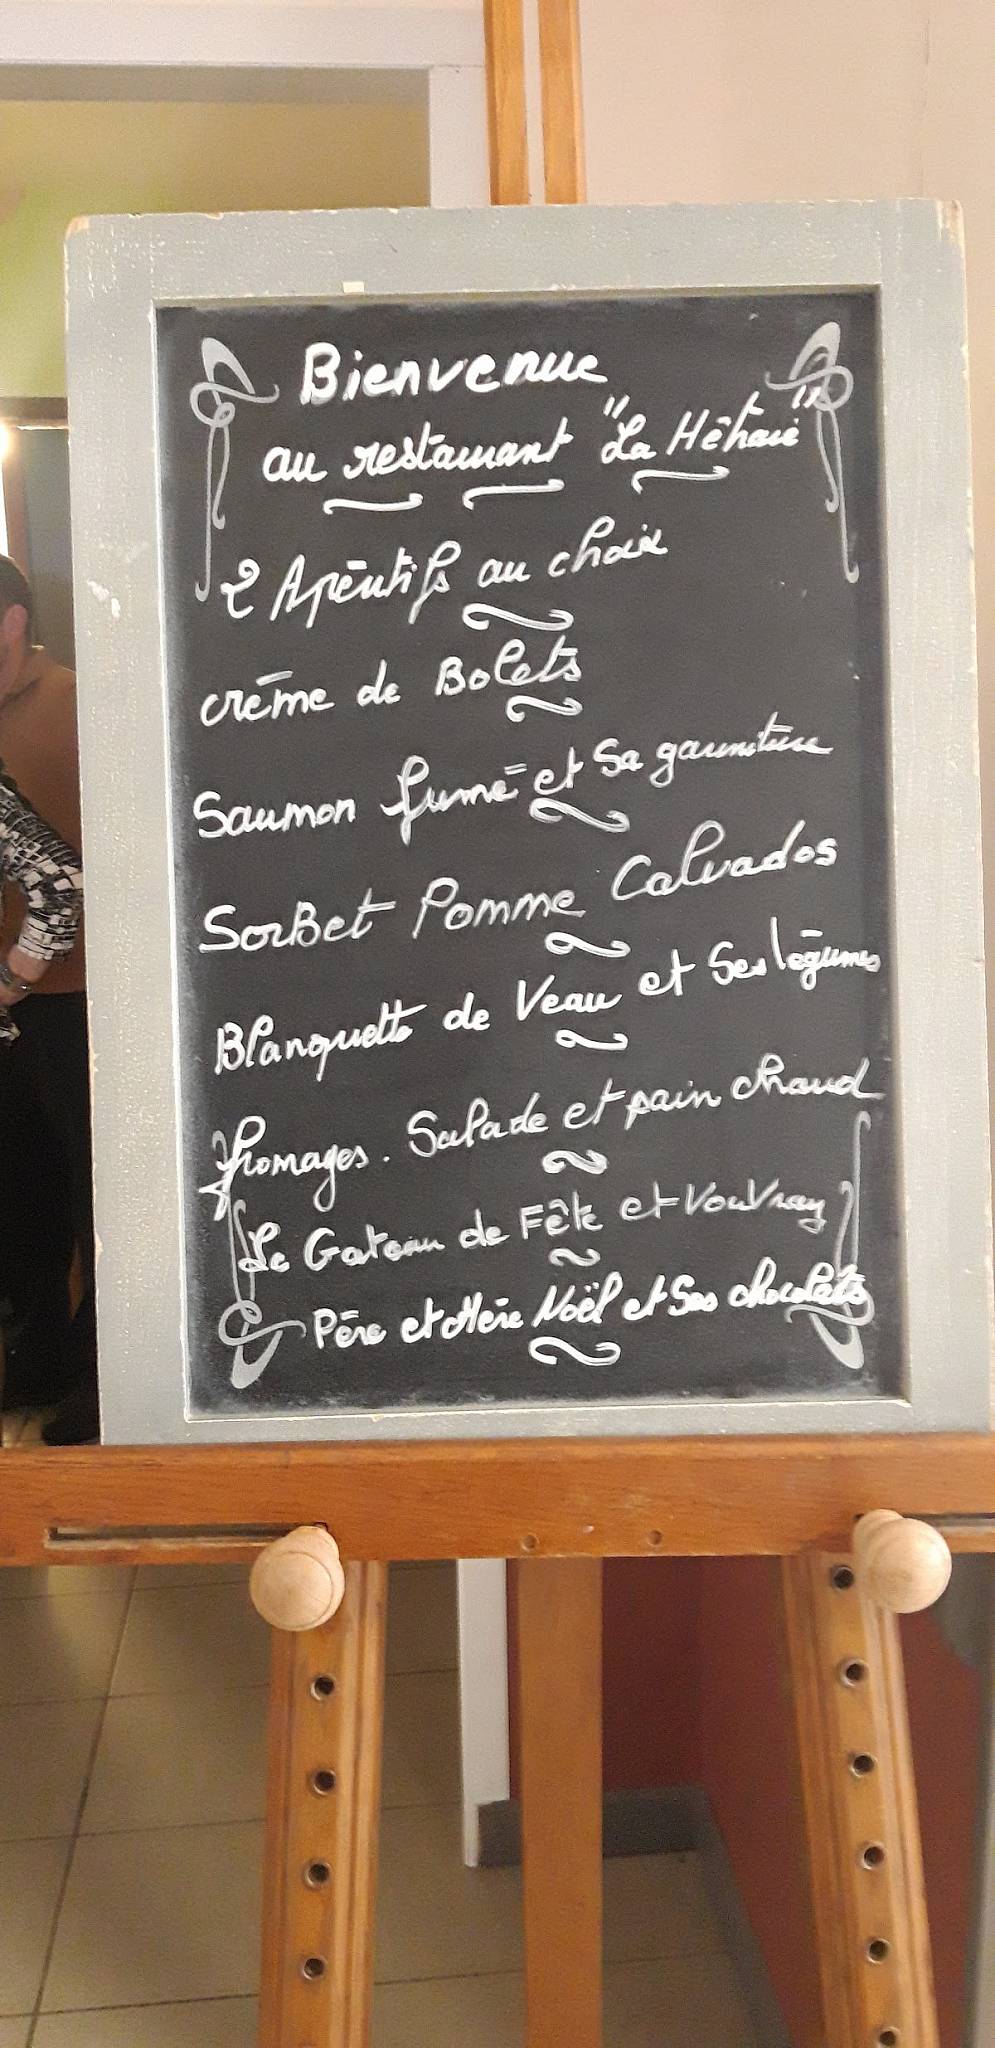 Bienvenue
au restaurant "La Hêtraie"
2 Apéritifs au choix
crème de Bolets
Saumon fumé et Sa garniture
Sorbet Pomme Calvados
Blanquette de Veau et Ses légumes
fromages. Salade et pain chaud
Le Gateau de Fête et Vouvray
Père et Mère Noël et Ses chocolats